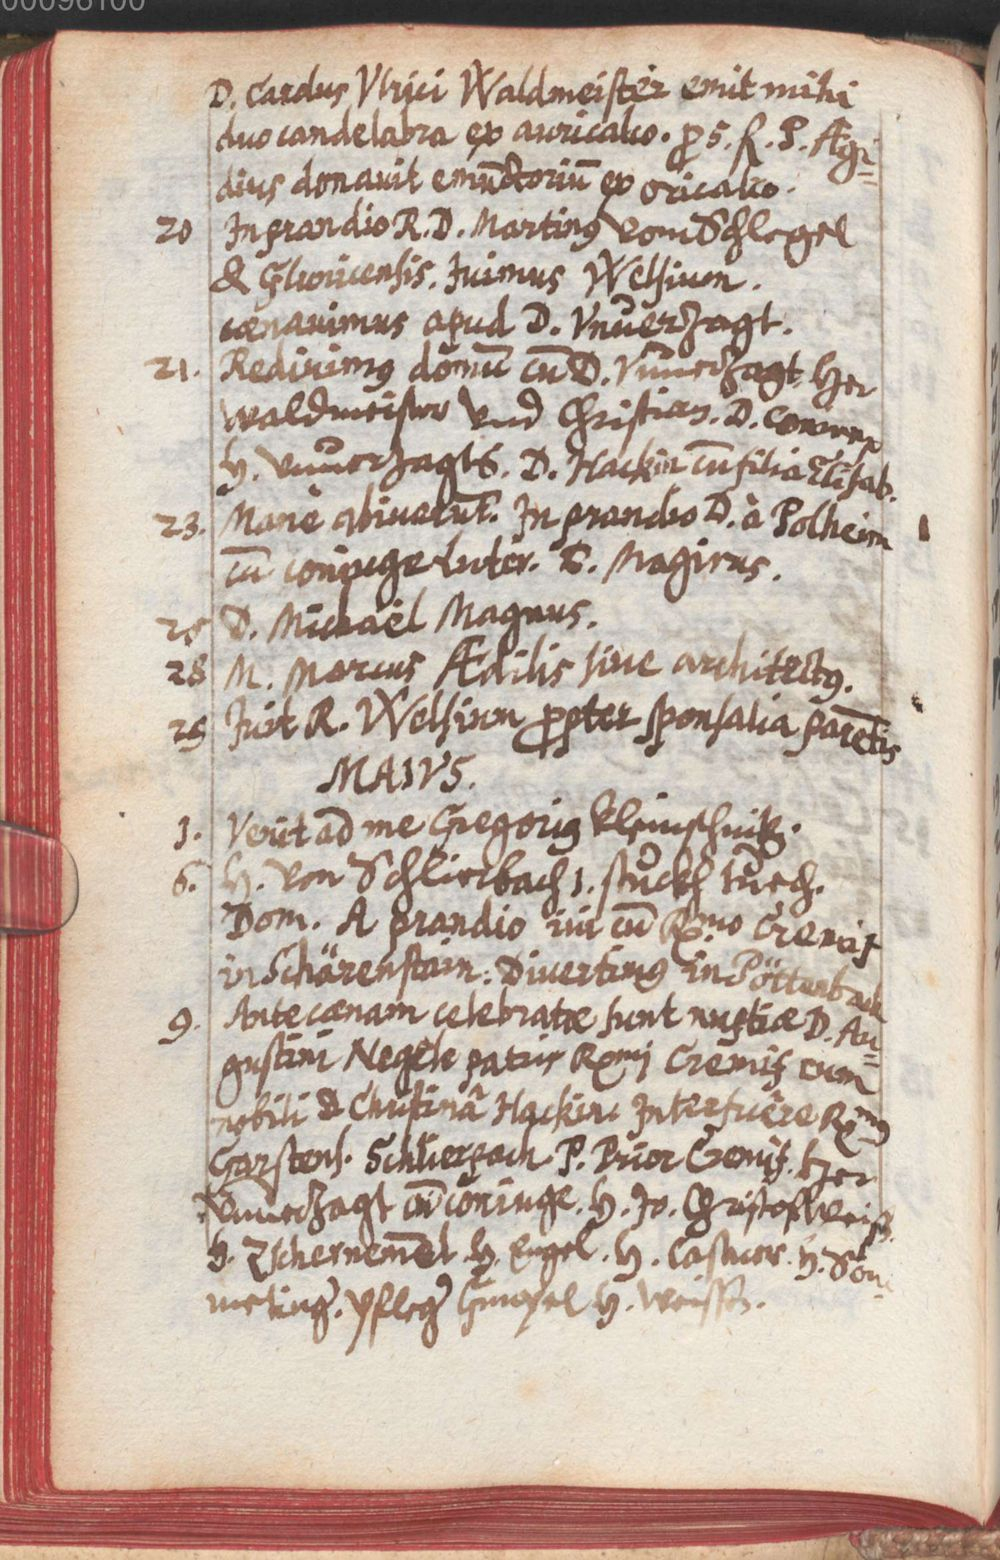 00096100
D. Carolus Vlrici Waldmeister emit mihi
duo candelabra ex auricalco. p 5. f. P. Ægi=
dius donauit emūctoriū ex oricalco.
20 In prandio R. D. Martinus vom Schlegel
& Glunicensis. Iuimus Welsium.
cœnauimus apud D. Vnuerzagt.
21. Rediuimus domū cū D. Vnuerzagt Her
Waldmeister vnd Christian. D.
H. Vnuerzagts. D. Hackin cū filia Elisab.
23. Manè abiuerūt. In prandio D. à Polheim
cū coniuge Luter. Magirus.
25 D. Michaël Magnus.
28 M. Marcus Ædilis siue architectus.
29 Iuit R. Welsium ꝓpter sponsalia parētis
MAIVS.
1. Venit ad me Gregorius
6. H. von Schlierbach 1. stuckh
Dom. A prandio iui cū Rmo Cremis
in Schärenstain. Diuertimus in Pöttenbach
9. Ante cœnam celebratæ sunt nuptiæ D. Au=
gustini Negele patris Rmi Cremis cum
nobili D Christinâ Hackin. Interfuêre Rmus
Garstens. Schlierpach P. Prior Cremis. Her
Vnuerzagt cū coniuge. H. Jo. Christof Weiss.
H. Tschernemel. H. Engel. H. Castner. H. Son
metinger. Pfleger H. Weissen.